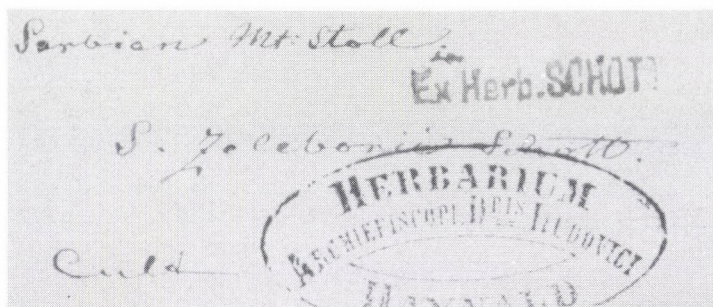 Serbian Mt. Stoll.
Ex Herb. SCHOTT
S. Zelebori Schott.
HERBARIUM
ARCHIEPISCOPI Dris LUDOVICI
HAYNALD
Cult